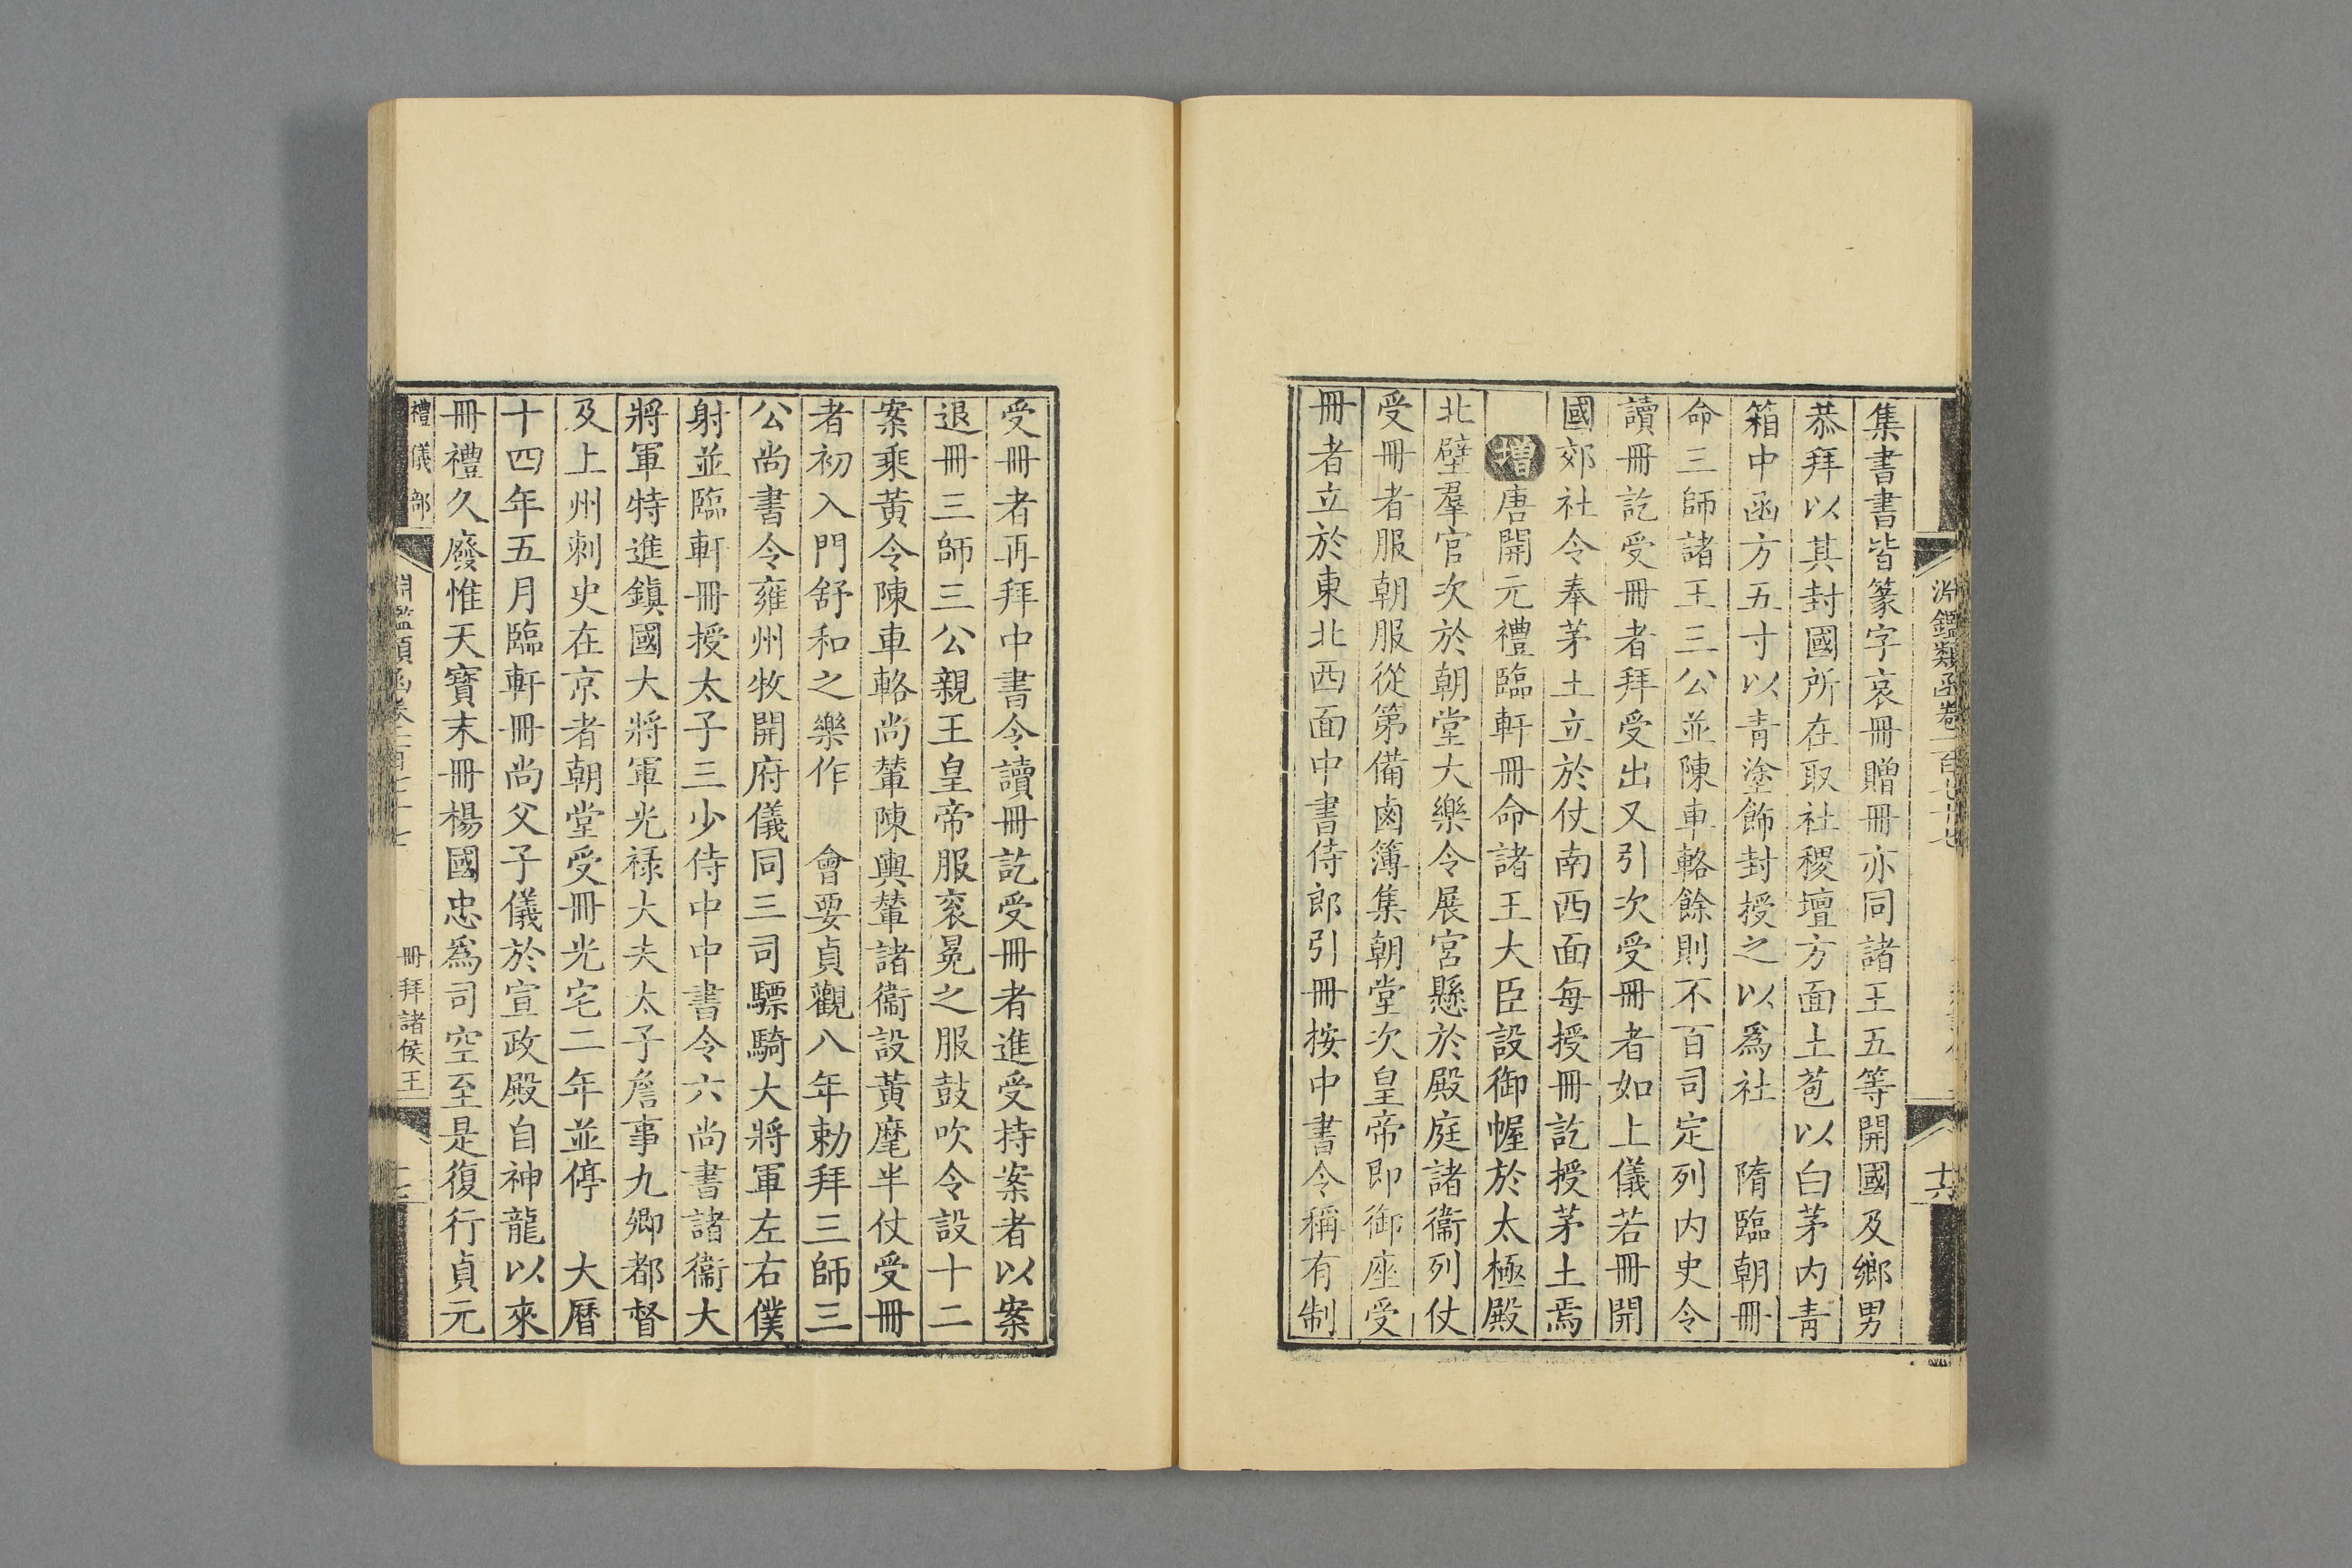 淵鑑類函卷一百七十七
十六
集書書皆篆字哀冊贈冊亦同諸王五等開國及鄉男
恭拜以其封國所在取社稷壇方面土苞以白茅内青
箱中函方五寸以青塗飾封授之以爲社　隋臨朝冊
命三師諸王三公並陳車輅餘則不百司定列内史令
讀冊訖受冊者拜受出又引次受冊者如上儀若冊開
國郊社令奉茅土立於仗南西面每授冊訖授茅土焉
增唐開元禮臨軒冊命諸王大臣設御幄於太極殿
北壁羣官次於朝堂大樂令展宮懸於殿庭諸衞列仗
受冊者服朝服從第備鹵簿集朝堂次皇帝即御座受
冊者立於東北西面中書侍郎引冊按中書令稱有制
受冊者再拜中書令讀冊訖受冊者進受持案者以案
退冊三師三公親王皇帝服衮冕之服鼓吹令設十二
案乘黃令陳車輅尚輦陳輿輦諸衞設黃麾半仗受冊
者初入門舒和之樂作　會要貞觀八年勅拜三師三
公尚書令雍州牧開府儀同三司驃騎大將軍左右僕
射並臨軒冊授太子三少侍中中書令六尚書諸衞大
將軍特進鎭國大將軍光祿大夫太子詹事九卿都督
及上州刺史在京者朝堂受冊光宅二年並停　大曆
十四年五月臨軒冊尚父子儀於宣政殿自神龍以來
冊禮久廢惟天寶末冊楊國忠爲司空至是復行貞元
禮儀部
淵鑑類函卷一百七十七
冊拜諸侯王